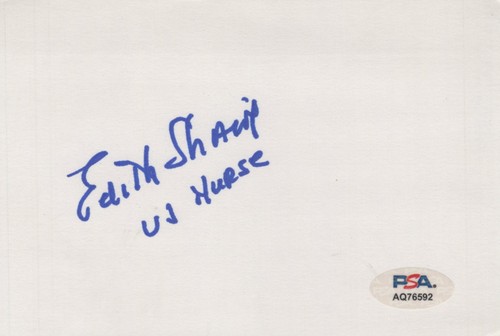 Edith Shain
VJ Nurse
PSA.
AQ76592